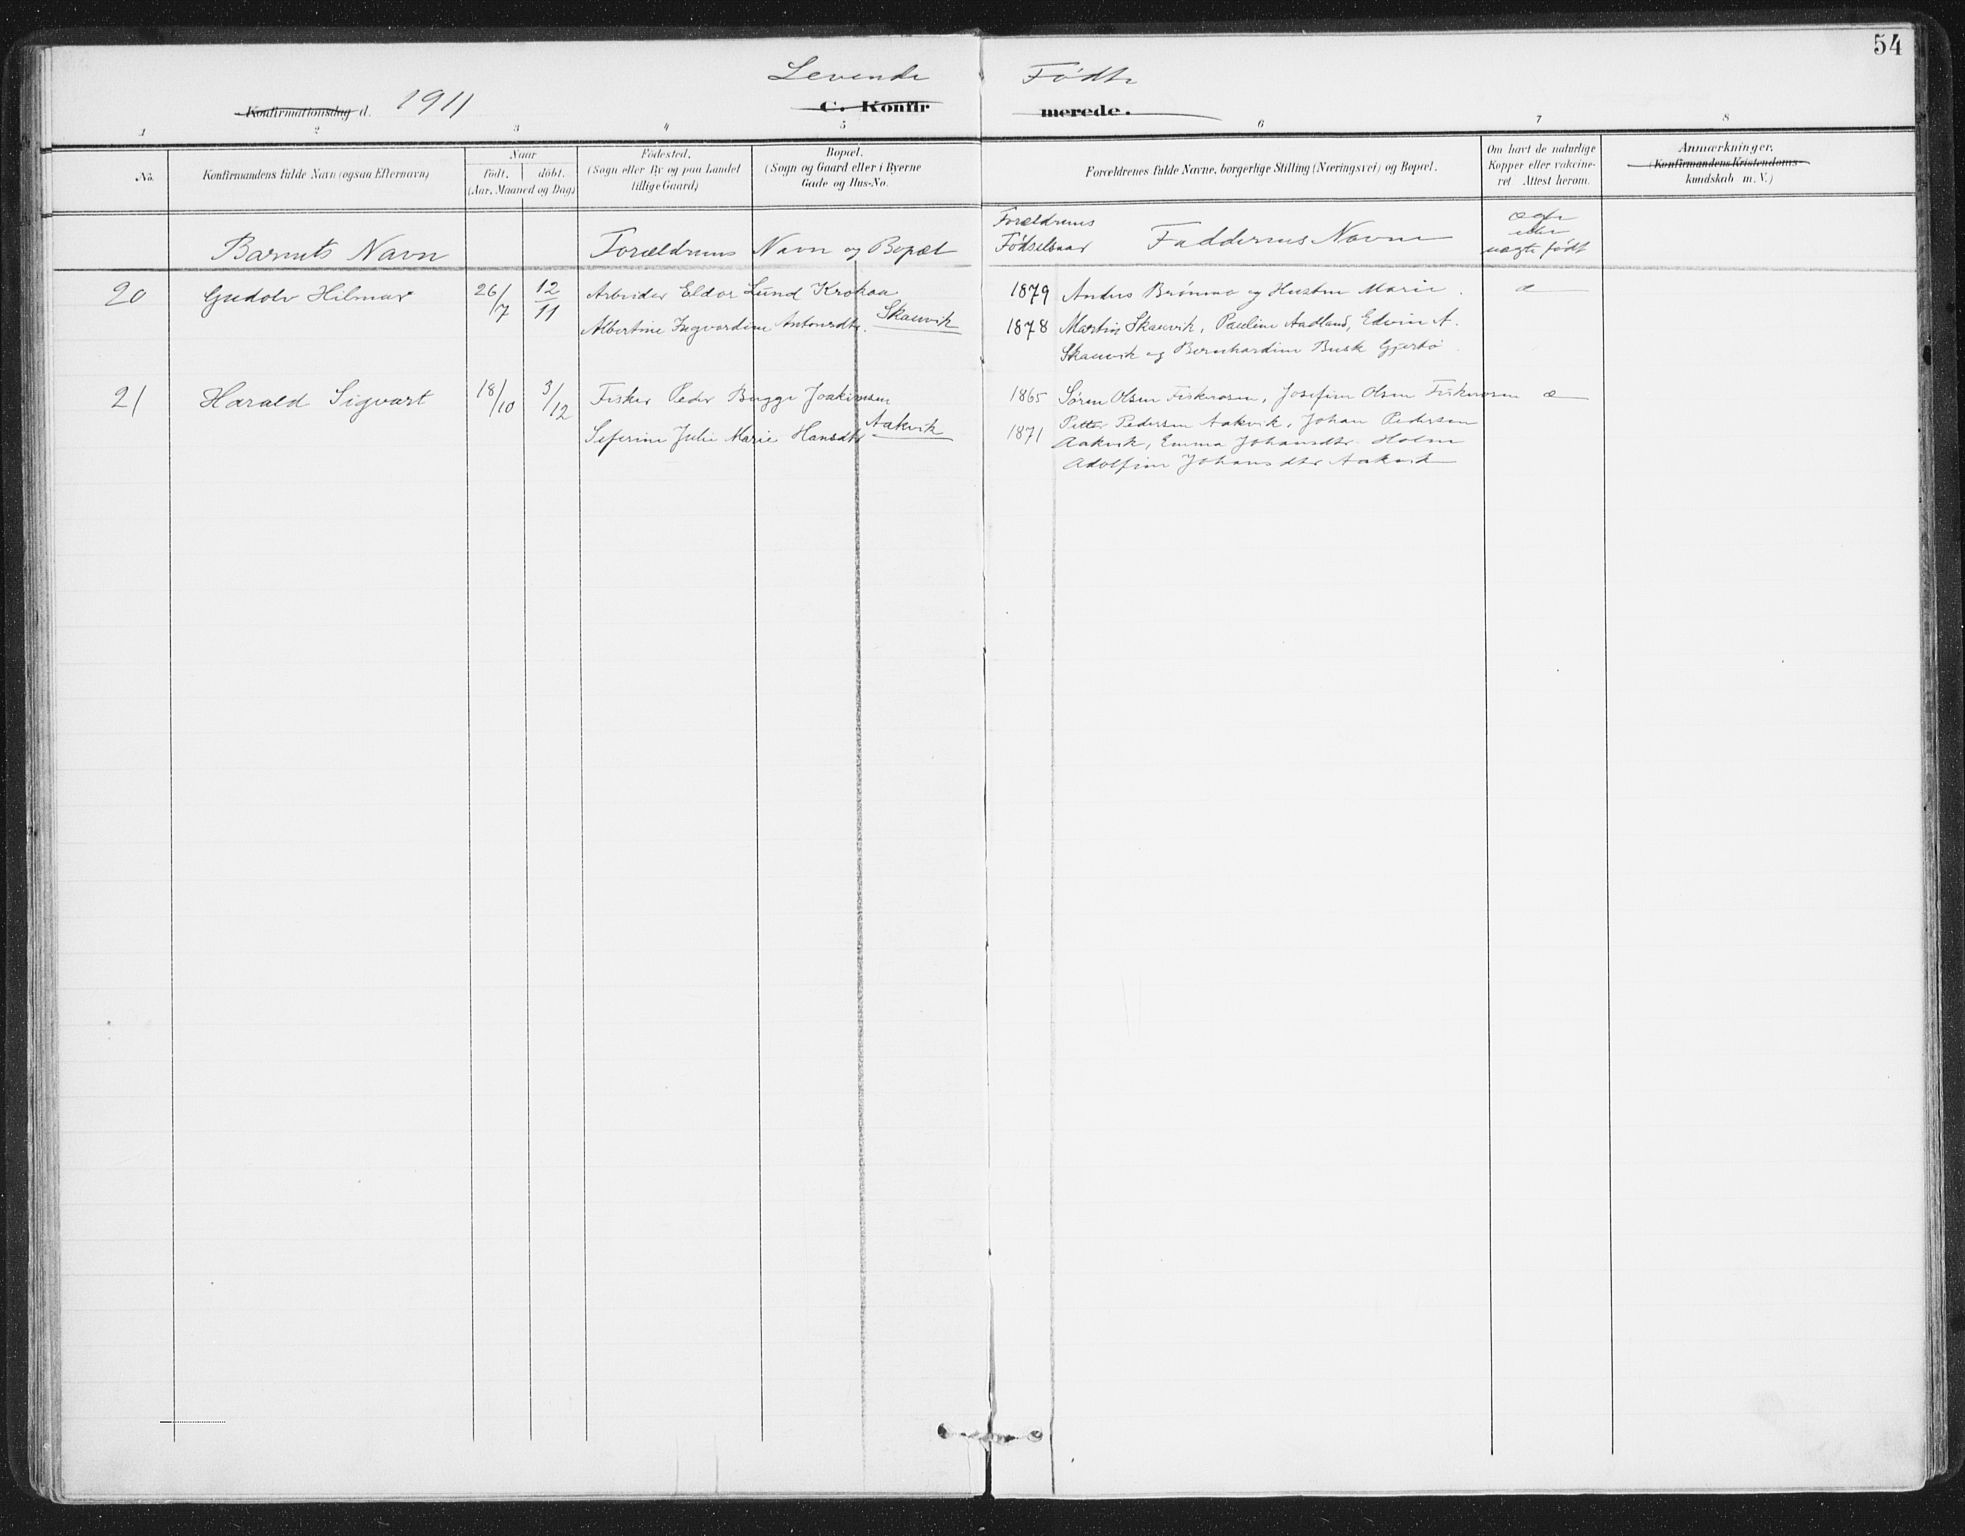 54
Levende Fødte
Konfirmationsdag d. 1911
C. Konfirmerede.
1 2 3 4 5 6 7 8
No.
Konfirmandens fulde Navn (ogsaa Efternavn)
Naar
født. døbt.
(Aar, Maaned og Dag)
Fødested.
(Sogn eller By og paa Landet
tillige Gaard)
Bopæl.
(Sogn og Gaard eller i Byerne
Gade og Hus-No.
Forældrenes fulde Navne, borgerlige Stilling (Næringsvei) og Bopæl.
Om havt de naturlige
Kopper eller vakcine-
ret. Attest herom.
Anmærkninger.
(Konfirmandens Kristendoms-
kundskab m. V.)
Barnets Navn
Forældrenes Navn og Bopæl
Forældrenes
Fødselsaar
Faddernes Navne
ægte
eller
uægte født
20 Gudolv Hilmar 26/7 12/11 Arbeider Eldor Lund Krokaa
Albertine Ingvardine Antonsdtr. Skauvik
1879 Anders Brønmo og Hustru Marie. æ
1878 Martin Skauvik, Pauline Aadland, Edvin A.
Skauvik og Bernhardine Busk Gjerbø.
21 Harald Sigvart 18/10 3/12 Fisker Peder Bugge Joakimsen
Seferine Julie Marie Hansdtr Aakvik
1865 Søren Olsen Fiskerosen, Josefine Olsen Fiskerosen æ
1871 Petter Pedersen Aakvik, Johan Pedersen
Aakvik, Emma Johansdtr. Holm
Adolfine Johansdtr Aakvik